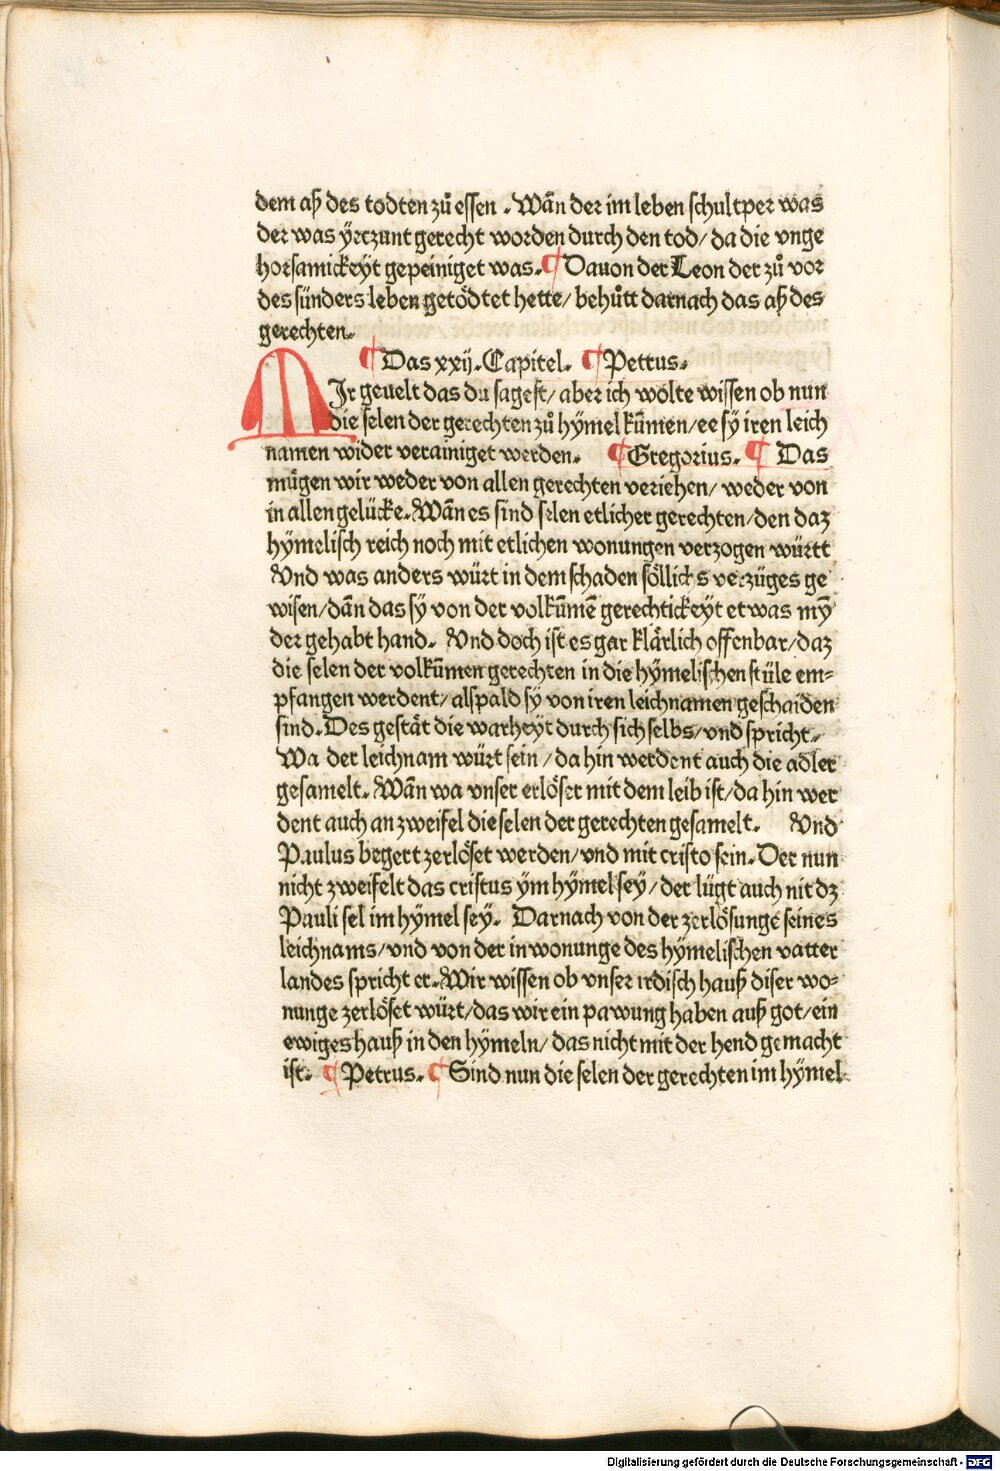 dem aß des todten zů essen . Wañ der im leben schultper was
der was ÿeczunt gerecht worden durch den tod/ da die vnge
horsamickeÿt gepeiniget was. ¶ Dauon der Leon der zů vor
des sünders leben getödtet hette/ behůtt darnach das aß des
gerechten.
¶ Das xxij. Capitel. ¶ Petrus.
MIr geuelt das du sagest/ aber ich wolte wissen ob nun
die selen der gerechten zů hÿmel kūmen/ ee sÿ iren leich
namen wider verainiget werden. ¶ Gregorius. ¶ Das
můgen wir weder von allen gerechten veriehen/ weder von
in allen gelücke. Wañ es sind selen etlicher gerechten/ den daz
hÿmelisch reich noch mit etlichen wonungen verzogen württ
Vnd was anders würt in dem schaden söllichs verzüges ge
wisen/ dañ das sÿ von der volkūmē gerechtickeÿt etwas mÿ
der gehabt hand. Vnd doch ist es gar klärlich offenbar/ daz
die selen der volkūmen gerechten in die hÿmelischen stüle em=
pfangen werdent/ alspald sÿ von iren leichnamen geschaiden
sind. Des gestät die warheÿt durch sich selbs/ vnd spricht.
Wa der leichnam würt sein/ da hin werdent auch die adler
gesamelt. Wañ wa vnser erlöser mit dem leib ist/ da hin wer
dent auch an zweifel die selen der gerechten gesamelt. Vnd
Paulus begert zerlöset werden/ vnd mit cristo sein. Der nun
nicht zweifelt das cristus ÿm hÿmel seÿ/ der lügt auch nit dz
Pauli sel im hÿmel seÿ. Darnach von der zerlösunge seines
leichnams/ vnd von der inwonunge des hÿmelischen vatter
landes spricht er. Wir wissen ob vnser irdisch hauß diser wo=
nunge zerlöset würt/ das wir ein pawung haben auß got/ ein
ewiges hauß in den hÿmeln/ das nicht mit der hend gemacht
ist. ¶ Petrus. ¶ Sind nun die selen der gerechten im hÿmel
Digitalisierung gefördert durch die Deutsche Forschungsgemeinschaft - DFG